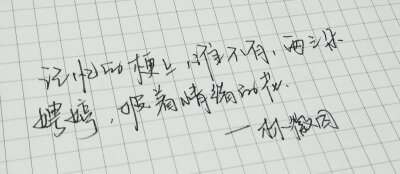 记忆的梗上,谁不有,两三朵
娉婷,披着情绪的花.
—林徽因